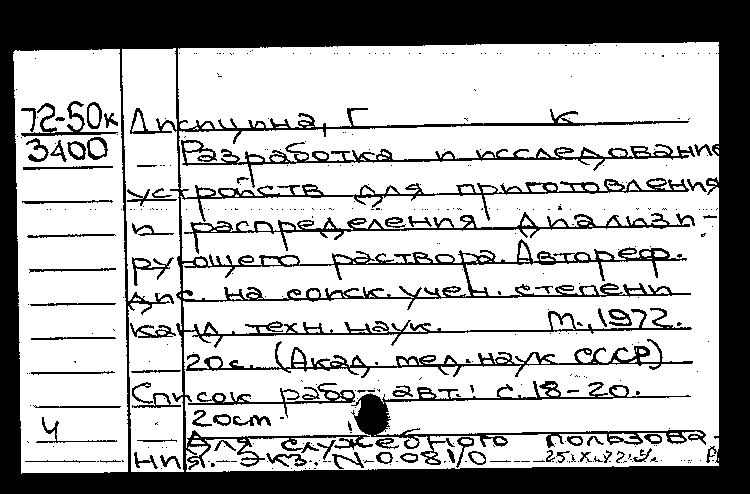 72-50к Липицина, Г К
3400 Разработка и исследование
устройств для приготовления
и распределения диализи-
рующего раствора. Автореф.
дис. на соиск. учен. степени
канд. техн. наук. М., 1972.
20с. (Акад. мед. наук СССР)
Список работ авт.: с. 18-20.
20 см.
Ч Для служебного пользова-
ния. Экз. N 00810